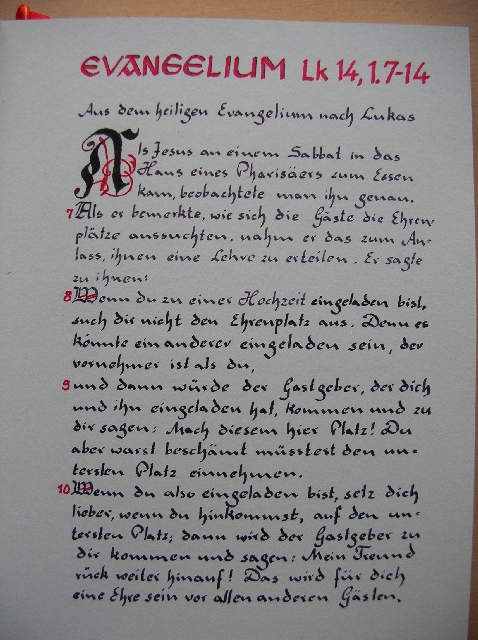 EVANGELIUM Lk 14, 1.7-14
Aus dem heiligen Evangelium nach Lukas
Als Jesus an einem Sabbat in das
Haus eines Pharisäers zum Essen
kam, beobachtete man ihn genau.
7 Als er bemerkte, wie sich die Gäste die Ehren-
plätze aussuchten, nahm er das zum An-
lass, ihnen eine Lehre zu erteilen. Er sagte
zu ihnen:
8 Wenn du zu einer Hochzeit eingeladen bist,
such dir nicht den Ehrenplatz aus. Denn es
könnte ein anderer eingeladen sein, der
vornehmer ist als du,
9 und dann würde der Gastgeber, der dich
und ihn eingeladen hat, kommen und zu
dir sagen: Mach diesem hier Platz! Du
aber warst beschämt müsstest den un-
tersten Platz einnehmen.
10 Wenn du also eingeladen bist, setz dich
lieber, wenn du hinkommst, auf den un-
tersten Platz; dann wird der Gastgeber zu
dir kommen und sagen: Mein Freund
rück weiter hinauf! Das wird für dich
eine Ehre sein vor allen anderen Gästen.